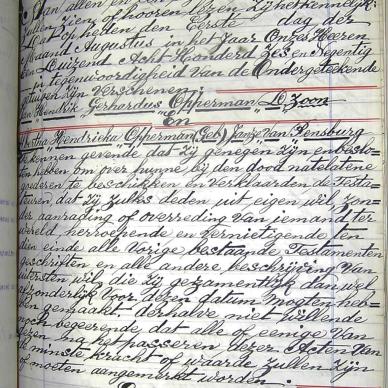 Aan allen en een
zullen zien of hooren lezen zij het kennelijk:
dat op heden den Eerste dag der
Maand Augustus in het Jaar Onzes Heeren
Een Duizend Acht Honderd Zes en Negentig
in tegenwoordigheid van de Ondergeteekende
Getuigen Zijn Verschenen:
Jan Hendrik Gerhardus Opperman LD Zoon
En
Martha Hendrieka Opperman (Geb) Janze Van Rensburg
Te kennen gevende dat zij genegen zijn en beslo-
ten hebben om over hunne bij den dood natelatene
goederen te beschikken en verklaarden de Testa-
teuren dat zij zulks deden uit eigen wil zon-
der aanrading of overreding van iemand ter
wereld, herroepende en vernietigende ten
dien einde alle Vorige bestaande Testamenten
geschriften en alle andere beschrijving Van
uitersten wil, die zij gezamentlijk dan wel
afzonderlijk voor dezen datum mogten heb-
ben gemaakt. derhalve niet willende
noch begeerende dat alle of eenige Van
dezen na het passeren dezer Acten Van
de minste kracht of waarde zullen zijn
of moeten aangemerkt worden